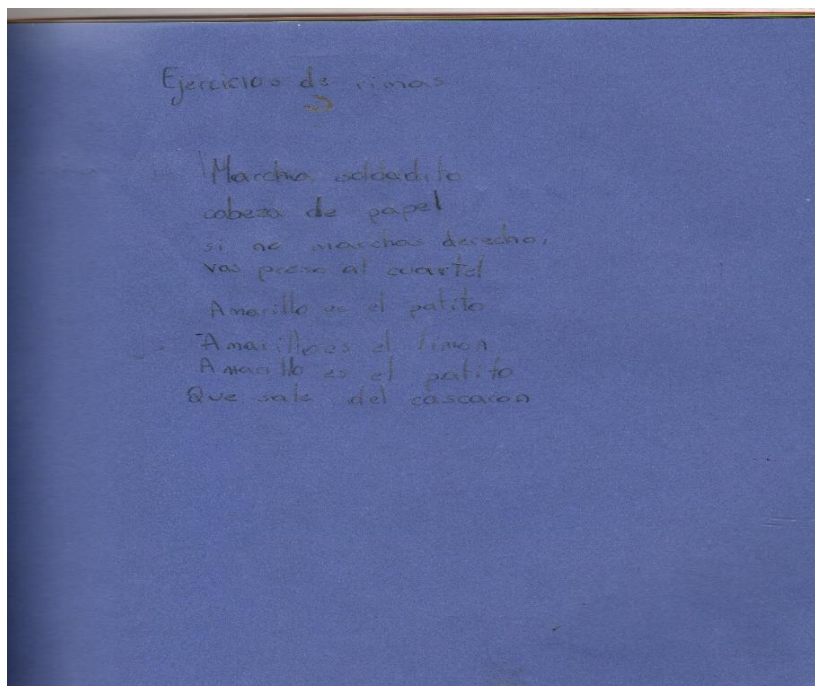 Ejercicios de rimas
Marcha soldadito
cabeza de papel
si no marchas derecho,
vas preso al cuartel
Amarillo es el patito
Amarillo es el limon
Amarillo es el patito
Que sale del cascaron